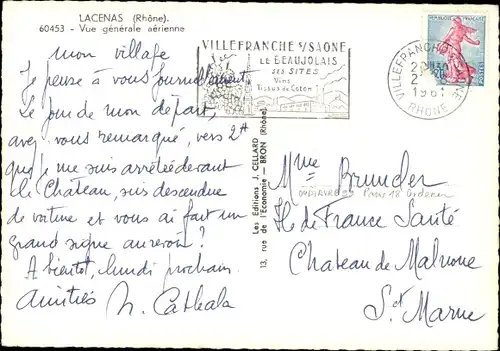 LACENAS (Rhône).
60453 - Vue générale aérienne
mon village
Je pense à vous journellement
Le jour de mon départ,
avez vous remarqué, vers 2H
que je me suis arrêtée devant
le Château, suis descendue
de voiture et vous ai fait un
grand signe au revoir?
A bientôt, lundi prochain.
Amitiés N. Cathala
VILLEFRANCHE S/SAONE
LE BEAUJOLAIS
SES SITES
Vins
Tissus de Coton
REPUBLIQUE FRANÇAISE
POSTES
VILLEFRANCHE
1961
RHONE
Les Editions J. CELLARD
13, rue de l'Economie - BRON (Rhône)
Mme Brunder
Paris 18 Ordener
Ile de France Santé
Chateau de Malnoue
S. et Marne